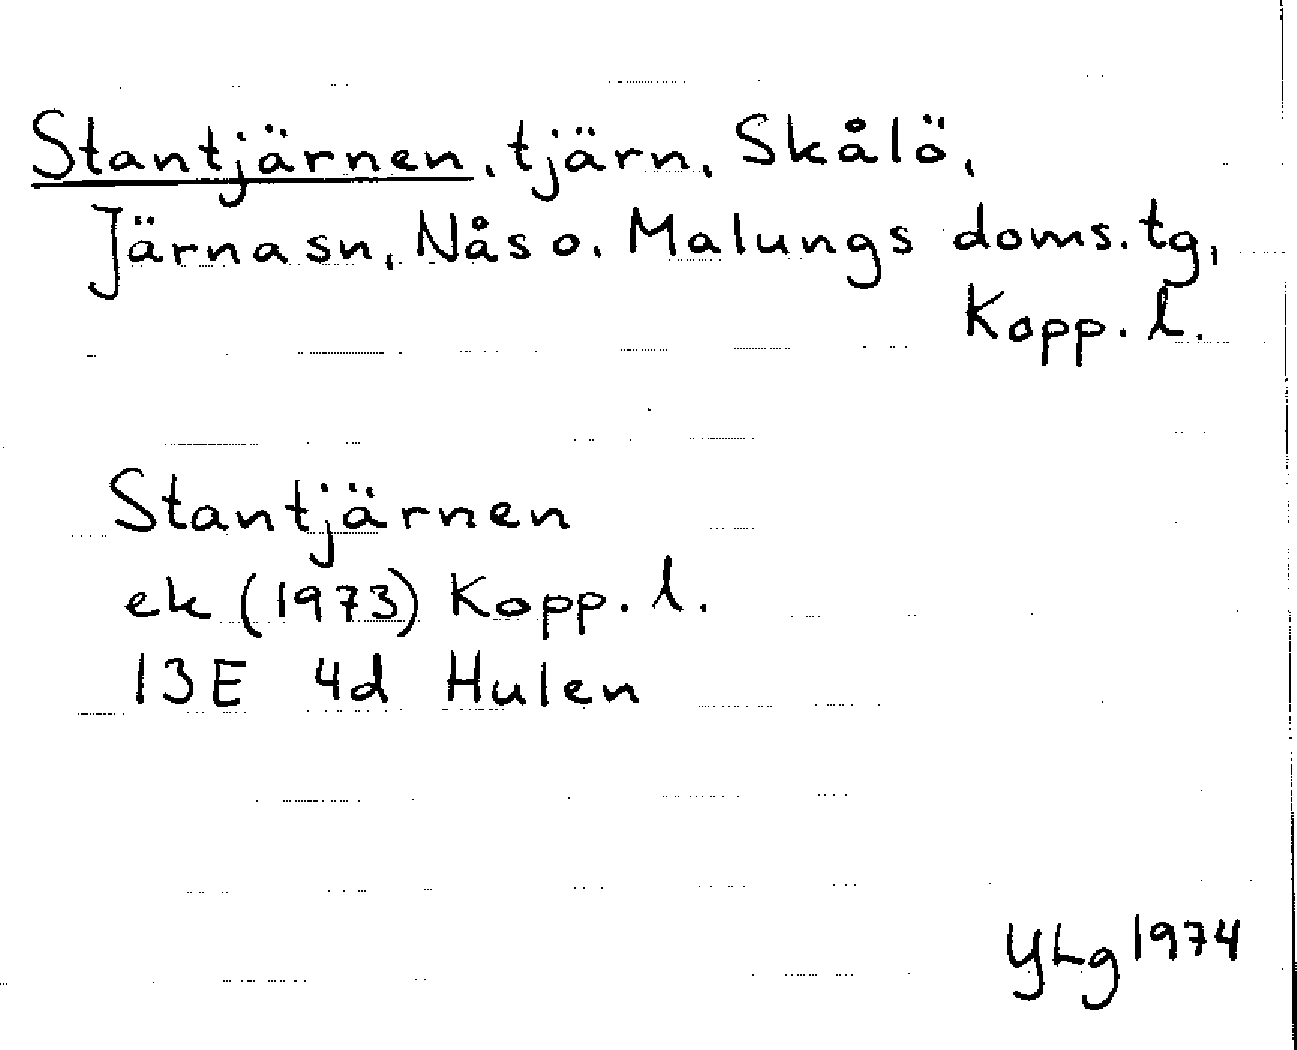 Stantjärnen, tjärn, Skålö,
Järna sn, Nås o. Malungs doms. tg,
Kopp. l.
Stantjärnen
ek (1973) Kopp. l.
13E 4d Hulen
YLg 1974